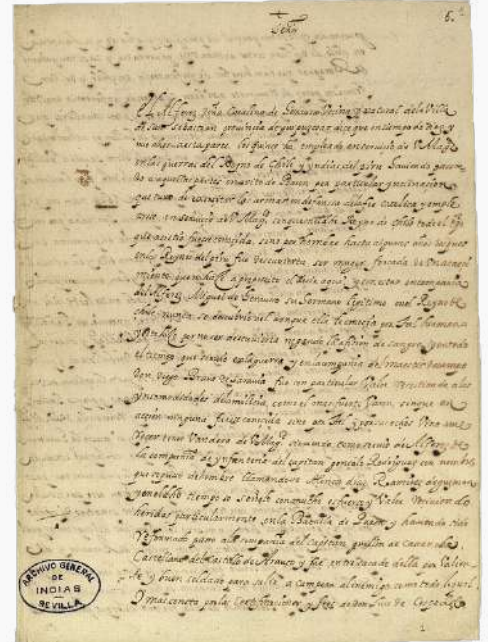 6.
Señor
El Alferez Doña Catalina de Erauso Vezina y natural de la Villa
de San Sebastian provincia de guipuzcoa dize que en tiempo de diez y
nueve años a esta parte los quinze ha empleado en servicio de V. Magd
en las guerras del Reyno de Chile y yndias del piru haviendo passa
do a aquellas partes en avito de Varon por particular ynclinacion
que tuvo de exercitar las armas en defensa de la fee catolica y emple
arse en servicio de V. Magd sin que en el dicho Reyno de chile todo el tpo
que asistio fuese conocida sino por hombre hasta algunos años despues
en los Reynos del piru fue descubierta ser muger forçada de un acaeci
miento que no haze a proposito el dezirlo aqui y con estar en compania
del Alferez Miguel de Erauso su hermano lexitimo en el Reyno de
chile nunca se descubrio a el aunque ella le conocia por tal hermano
y en todo el tiempo
que sirvio en la guerra y en la compania del maestre de campo
Don Diego Bravo de Saravia fue con particular Valor resistiendo a las
yncomodidades de la milicia como el mas fuerte Varon sin que en
accion ninguna fuese conocida sino por tal y por sus echos vino a me
recer tener Vandera de V. Magd sirviendo como sirvio de Alferez de
la compania de ynfanteria del capitan gonzalo Rodriguez con nombre
que se puso de hombre llamandose Alonso diaz Ramirez de guzman
y en el dicho tiempo se señalo con mucho esfuerzo y Valor reciviendo
heridas particularmente en la Batalla de Puren y haviendo sido
Reformado paso a la compania del capitan guillen de Casanova
Castellano del Castillo de Arauco y fue entresacado de ella por Valien
te y buen soldado para salir a campear al enemigo como todo lo qual
y mas consta por las Certificaciones y fees de Don Luis de Cespedes
ARCHIVO GENERAL
DE
INDIAS
SEVILLA